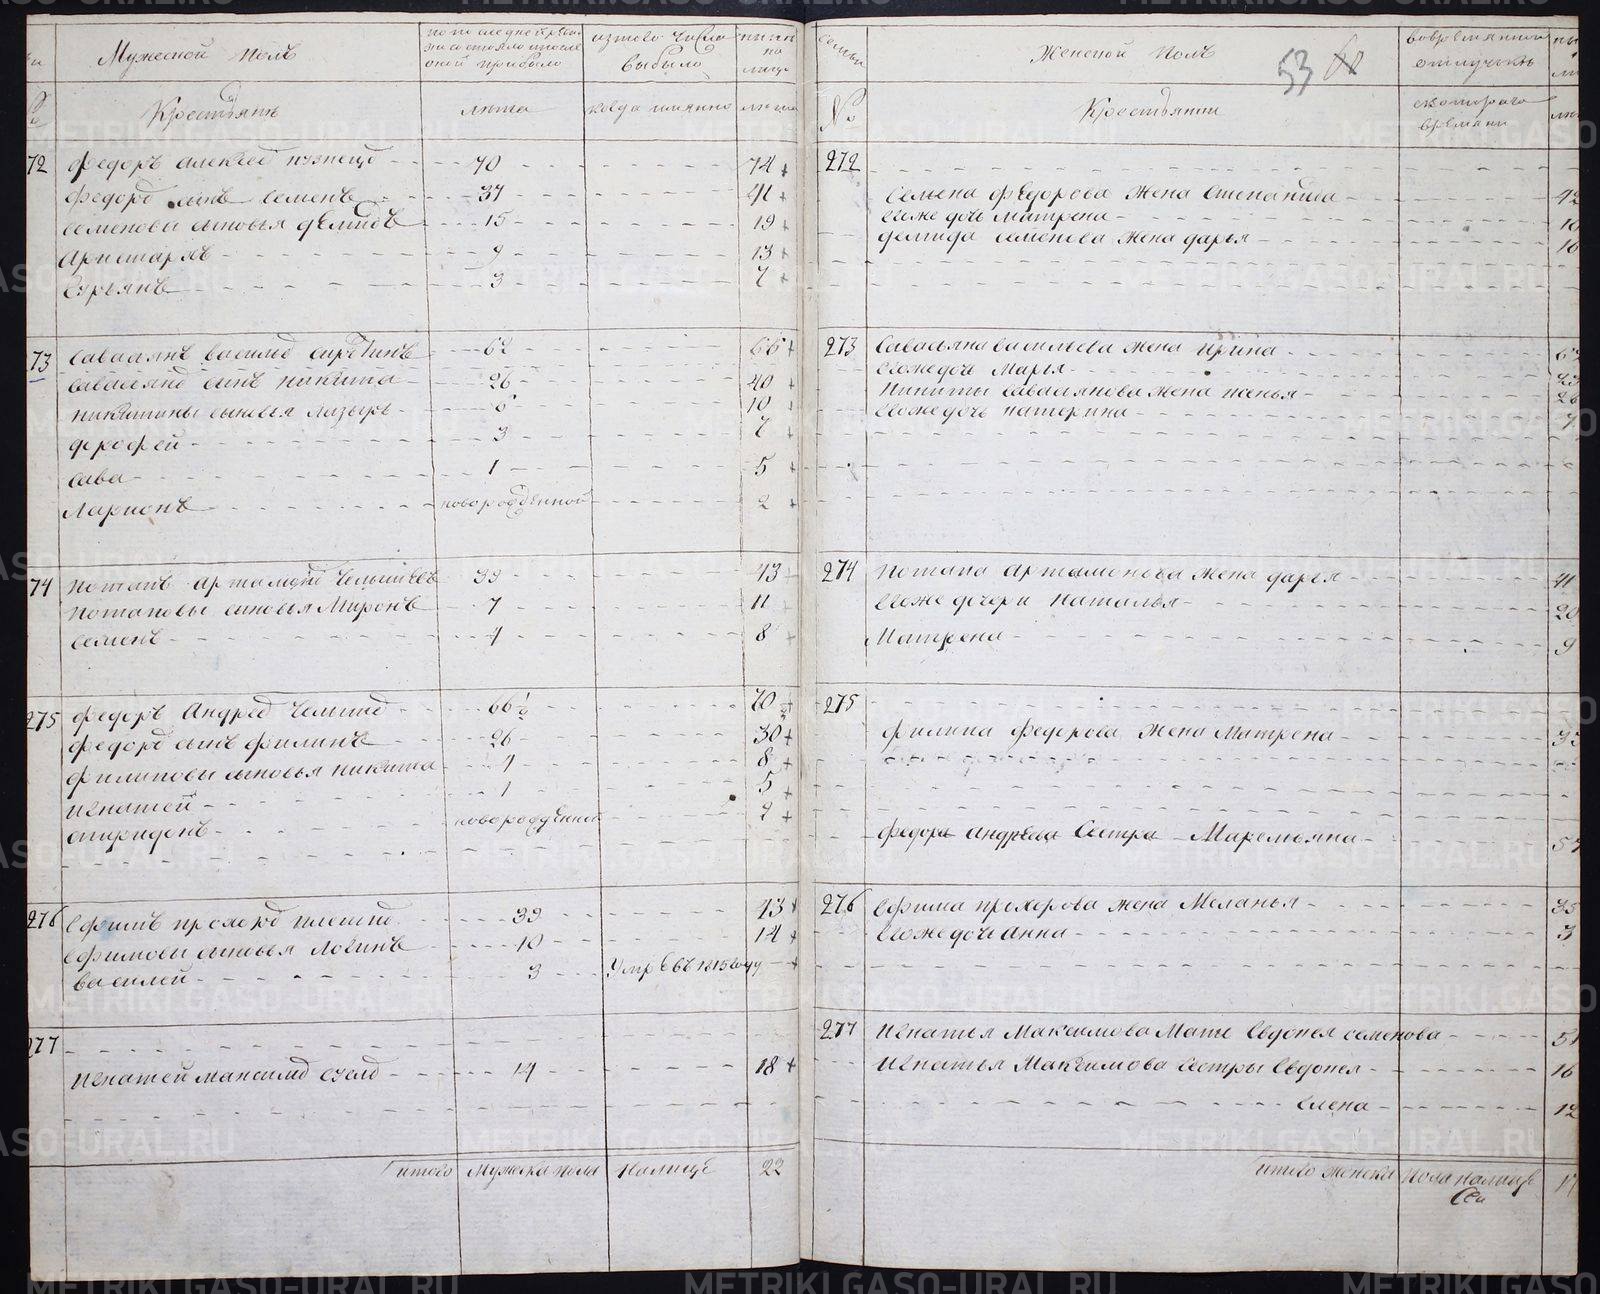 Мужеской полъ
по последней реви
зии состояло и после
оной прибыло
изтого числа
выбыло
ныне
на
лицо
№
Крестьянъ
лета
когда имянно
лета
72 Федоръ Алексеев 70 74
Федоров сынъ Семенъ 37 41
Семеновы сыновья Демидъ 15 19
Аристархъ 9 13
Гурьянъ 3 7
73 Савасьянъ Васильев 62 66
Савасьянов сынъ Никита 26 40
Никитины сыновья Лазырь 6 10
Дорофей 3 7
Сава 1 5
Ларионъ новорожденной 2
74 Потапъ Артамонов 39 43
Потаповы сыновья Миронъ 7 11
Семенъ 4 8
275 Федоръ Андреев 66½ 70½
Федоров сынъ Филипъ 26 30
Филиповы сыновья Никита 4 8
Игнатей 1 5
Спиридонъ новорожденной 2
276 Ефимъ Прохоров 39 43
Ефимовы сыновья Логинъ 10 14
Василей 3 Умре въ 1815 году
277
Игнатей Максимов 14 18
Итого Мужеска пола налицо 22
семьи
Женской полъ
53
вовременной
отлучке
№
Крестьянки
скотораго
времяни
272
Семена Федорова жена Степанида 42
Егоже дочь Матрена 10
Демида Семенова жена Дарья 16
273 Савасьяна Васильева жена Ирина 62
Егоже дочь Марья 23
Никиты Савасьянова жена 26
Егоже дочь Катерина 7
274 Потапа Артамонова жена Дарья 41
Егоже дочери Наталья 20
Матрена 9
275
Филипа Федорова жена Матрена 33
Федора Андреева Сестра Маремьяна 57
276 Ефима Прохорова жена Меланья 35
Егоже дочь Анна 3
277 Игнатья Максимова Мать Евдокея Семенова 51
Игнатья Максимова Сестры Евдокея 16
Елена 12
Итого женска Пола налицо 17
METRIKI.GASO-URAL.RU